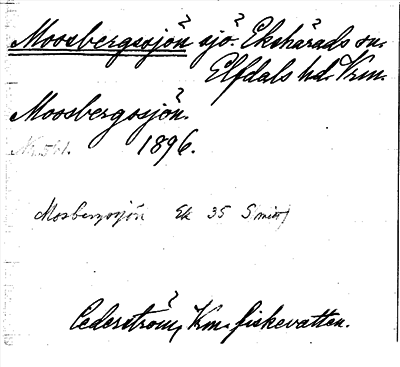 Moosbergssjön sjö. Ekshärads sn.
Elfdals hd. Vrm.
Moosbergssjön.
1896.
Mosbergssjön Ek 35 Smitt
Cederström, Vrm. fiskevatten.